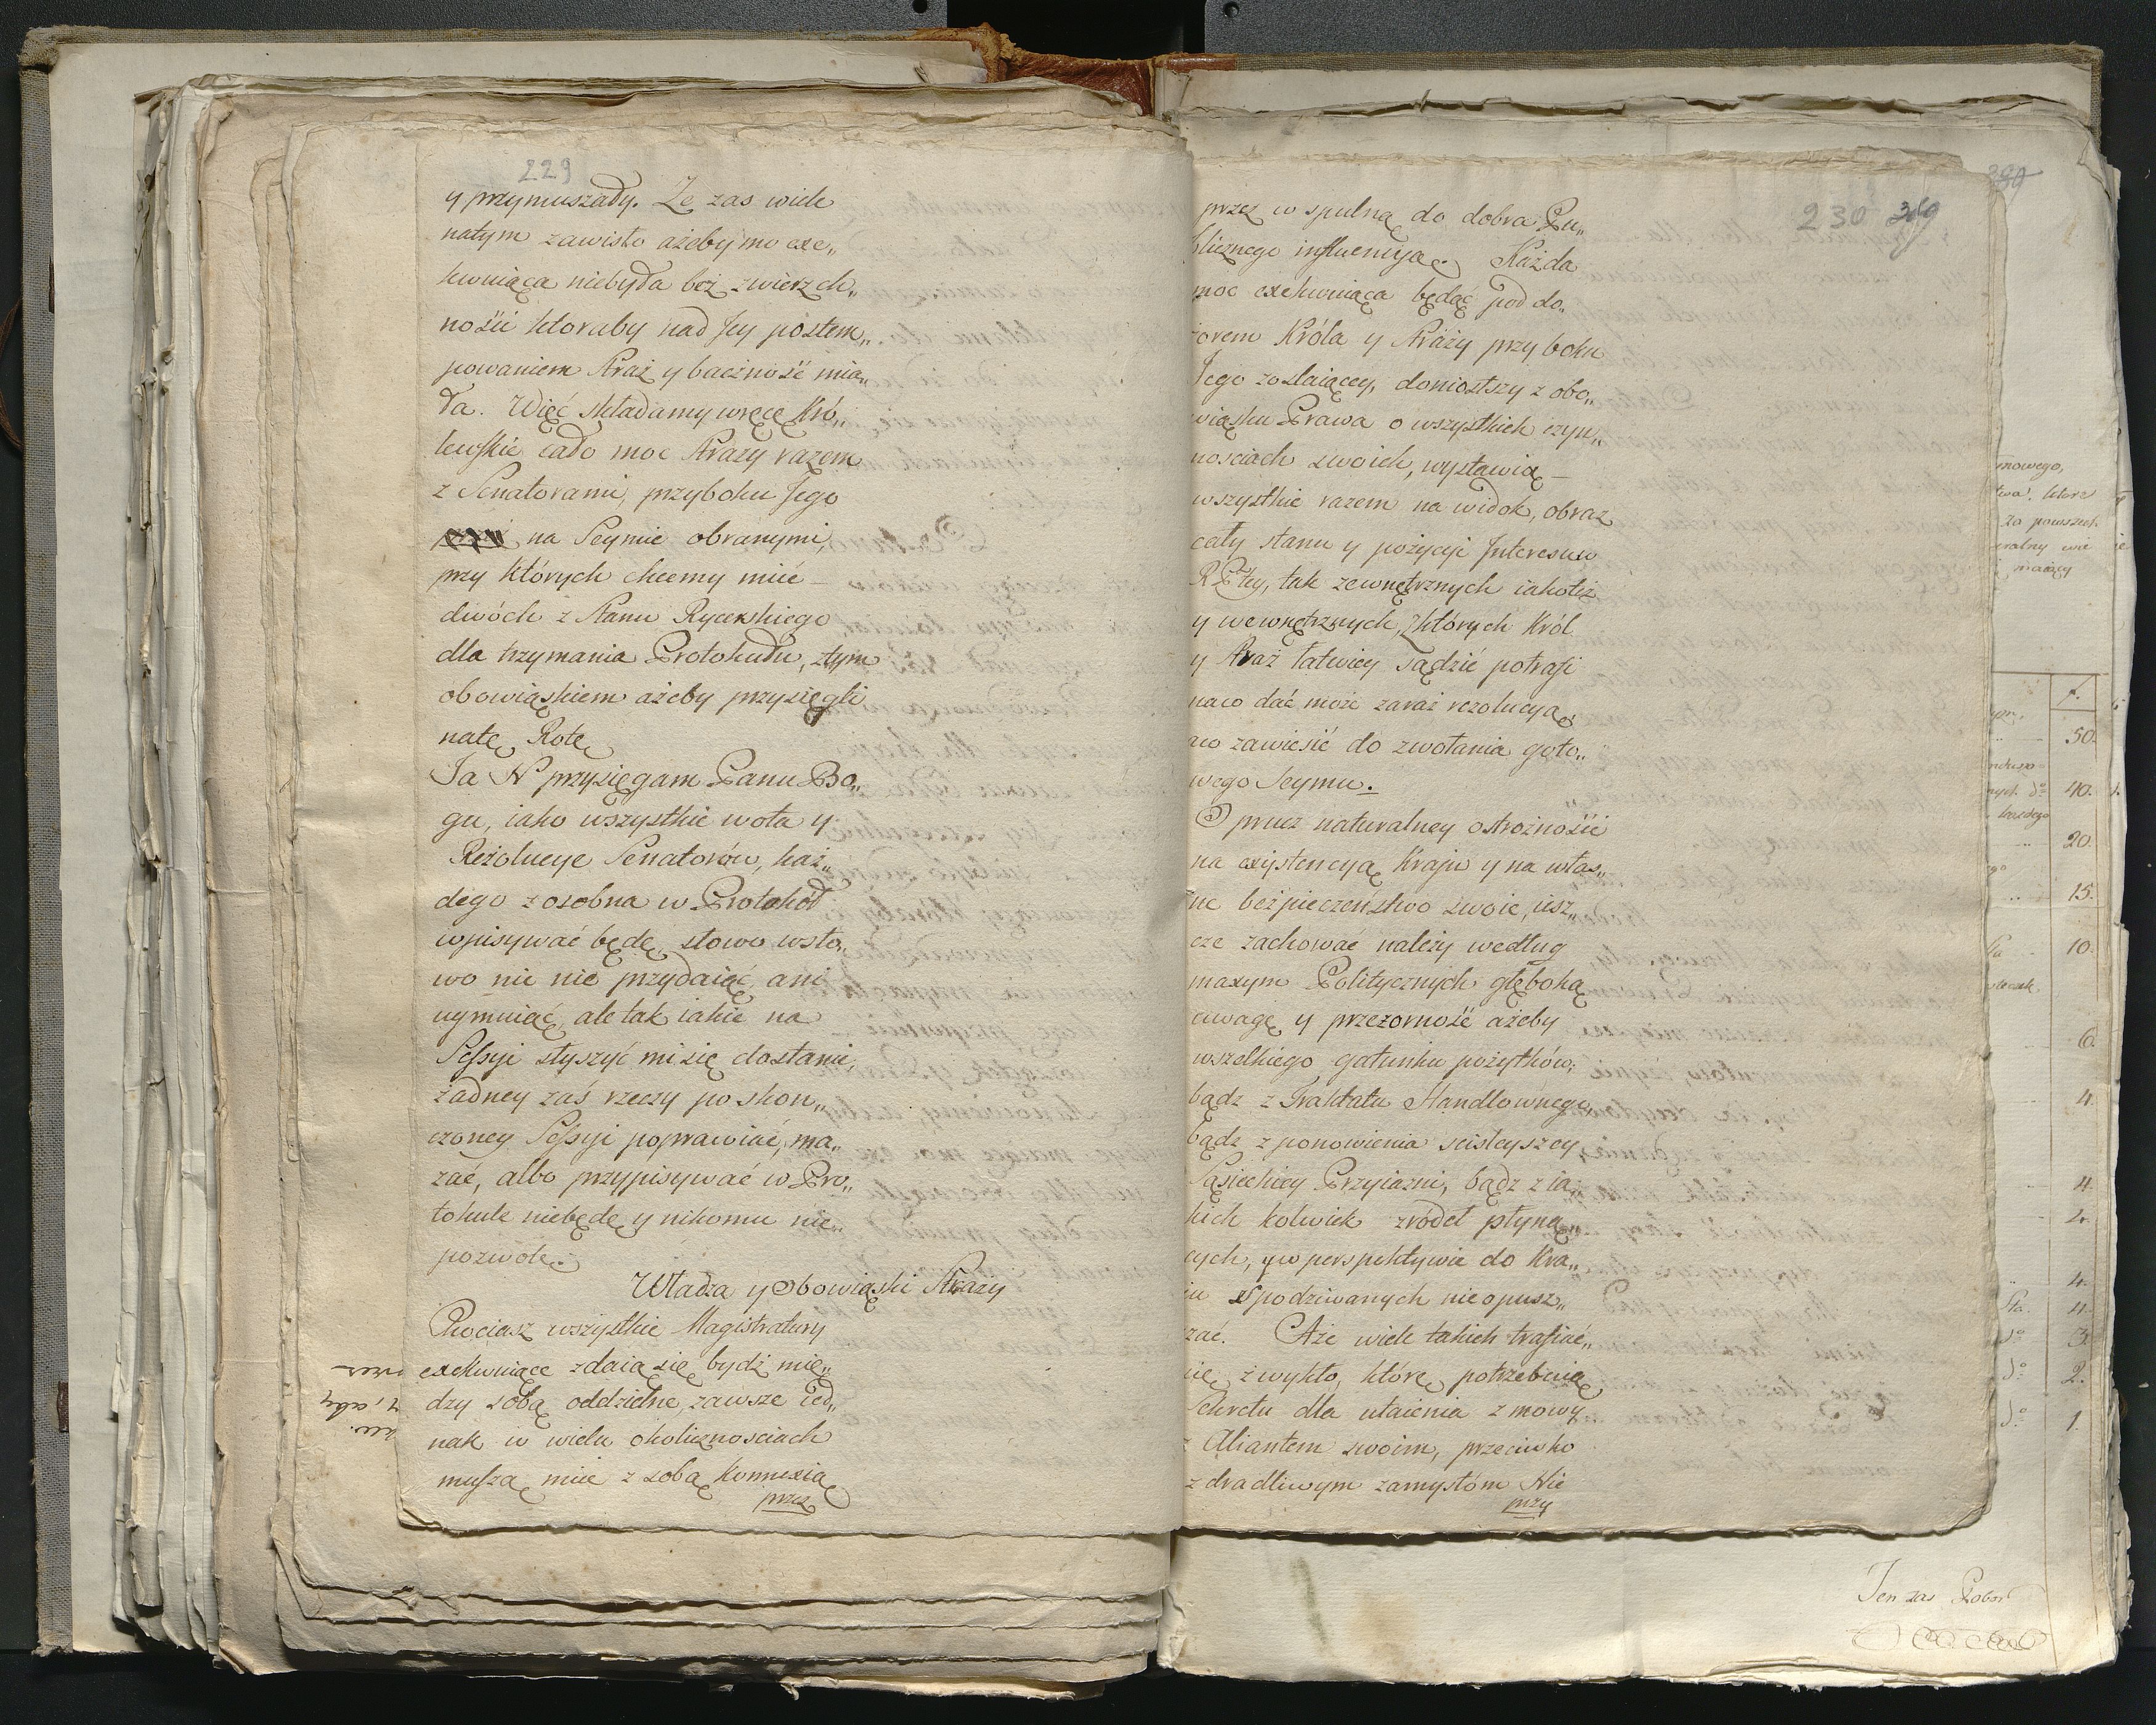 229
y przymuszały. Ze zas wiele
natym zawisło ażeby mo exe„
kwuiąca niebyła beż zwierzch„
nośii ktoraby nad Jey postem„
powaniem Straż y baczność mia„
ła. Więć składamy wręce Kró„
lewskie całą moc Straży razem
z Senatorami, przyboku Jego
na Seymie obranymi,
przy których chcemy mieć
dwóch z Stanu Rycerskiego
dla trzymania Protokułu, ztym
obowiąskiem ażeby przysięgli
natę Rotę
Ja N przysięgam Panu Bo„
gu, iako wszystkie wota y
Rezolucye Senatorów, każ„
dego zosobna w Protokół
wpisywać będę słowo wsło„
wo nic nie przydaiąć, ani
uymuiąć, ale tak iakie na
Seſsyi słyszyć mi się dostanie,
żadney zaś rzeczy po skoń„
czoney Seſsyi poprawiać, ma„
zać, albo przypisywać w Pro„
tokule niebędę y nikomu nie„
pozwolę.
Władza y Obowiąski Straży
Chociasz wszystkie Magistratury
exekwuiące zdaią się bydź mię„
dzy sobą oddzielne, zawsze ied„
nak w wielu okolicznosciach
muſzą mieć z sobą Konnexią
przez
230 319
przez wspulną do dobra Pu„
blicznego influencyą. Każda
moc exekwuiąca będąć pod do„
zorem Króla y Straży przy boku
Jego zostaiącey, doniosłszy z obo„
wiąsku Prawa o wszystkich czyn„
nosciach swoich, wystawią
wszystkie razem na widok, obraz
cały stanu y pożycyi Interesuw
RPltey, tak zewnętrznych iakotiż
y wewnętrznych, z których Król
y Straż łatwiey sądzić potrafi
naco dać może zaraż rezolucyą,
aco zawiesić do zwołania goto„
wego Seymu.
Oprucz naturalney ostrożnośii
na exystencyą Kraju y na włas„
ne beźpieczeństwo swoie, iesz„
cze zachować należy według
maxym Politycznych głęboką
uwagę y przezorność ażeby
wszelkiego gatunku pożytków,
bądz z Traktatu Handlownego,
bądz z ponowienia scisleyszey
Sąsieckiey Przyiazni, bądz z ia„
kich kolwiek zrodeł płyną„
cych, y w perspektywie do Kra„
iu Spodziwanych nieopusz„
zać. Aże wiele takich trafiać„
się zwykło, które potrzebuią
Sekretu dla utaienia zmowy
z Aliantem swoim, przeciwko
zdradliwym zamysłom Nie
przy
mowego,
które
za powszech
p.
50.
40.
20.
15.
10.
6
4.
4.
2.
4.
4.
3.
2.
1.
Ten zas